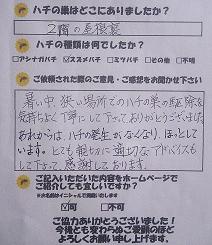 ハチの巣はどこにありましたか?
2階の屋根裏
ハチの種類は何でしたか?
□アシナガバチ ☑スズメバチ □ミツバチ □その他 □不明
ご依頼された際のご意見・ご感想をお聞かせ下さい
暑い中 狭い場所でのハチの巣の駆除を
気持ちよく丁寧にして下さってありがとうございました。
あれからは、ハチの発生がなくなり、ほっとして
います。とても親切に適切なアドバイスも
して下さって、感謝しております。
ご記入いただいた内容をホームページで
ご紹介しても宜しいですか?
☑可 □不可
ご協力ありがとうございます!
今後とも変わらぬご愛顧のほど
よろしくお願い申し上げます。